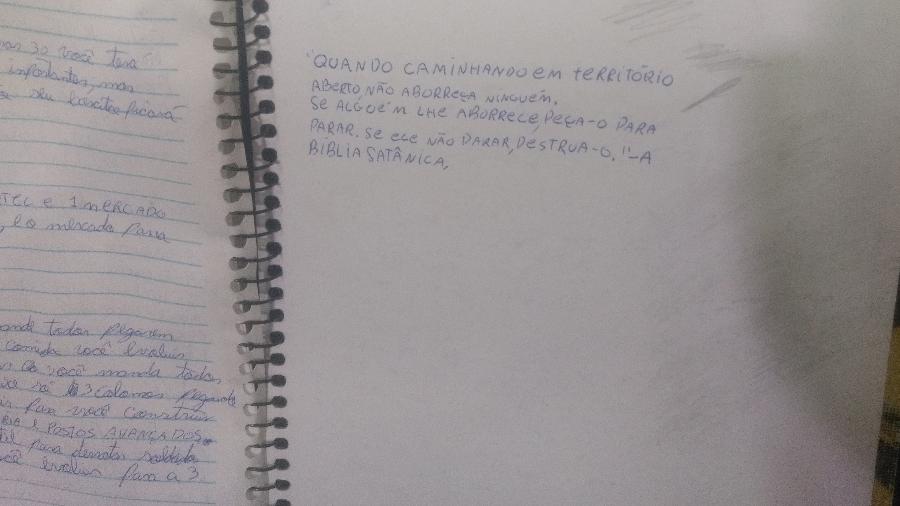 mas 30 você terá
importantes, mas
seu exército ficará
TEC e 1 MERCADO
, e o mercado para
mande todos pegarem
comida você evoluir
você manda todos
só 3 colonos pegando
para você construir
E POSTOS AVANÇADOS
para derrotar soldado
evoluir para a 3.
"QUANDO CAMINHANDO EM TERRITÓRIO
ABERTO, NÃO ABORREÇA NINGUÉM.
SE ALGUÉM LHE ABORRECE, PEÇA-O PARA
PARAR. SE ELE NÃO PARAR, DESTRUA-O."-A
BÍBLIA SATÂNICA,